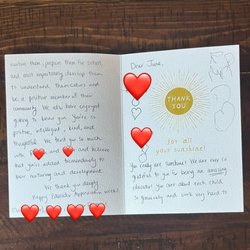 nurture them, prepare them for school,
and most importantly develop them
to understand themselves and
be a positive member of their
community. We all have enjoyed
getting to know you. You're so
positive, intelligent, kind, and
thoughtful. We
so much
with and and believe
that you've added tremendously to
their nurturing and development.
We thank you deeply,
Happy Educator Appreciation week!
Dear June,
THANK
YOU
for all
your sunshine!
You really are Sunshine! We are ever so
grateful to you for being an amazing
educator. You care about each child
so genuinely and work very hard to